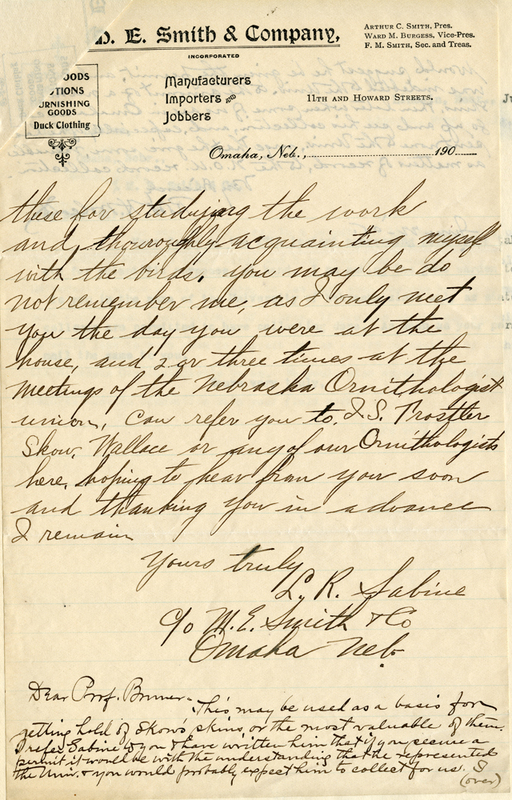 D. E. Smith & Company,
INCORPORATED
ARTHUR C. SMITH, Pres.
WARD M. BURGESS, Vice-Pres.
F. M. SMITH, Sec. and Treas.
GOODS
OTIONS
URNISHING
GOODS
Duck Clothing
Manufacturers
Importers and
Jobbers
11TH AND HOWARD STREETS.
Omaha, Neb., 190
these for studying the work
and thouroughly acquainting myself
with the birds. you may be do
not remember me, as I only meet
you the day you were at the
house, and 2 or three times at the
meetings of the Nebraska Ornithologist
union, Can refer you to I.S. Trostler
Skow, Wallace or any of our Ornithologists
here, hoping to hear from you soon
and thanking you in advance
I remain
Yours truly
L. R. Sabine
c/o M. E. Smith & Co
Omaha Neb.
Dear Prof. Bruner - This may be used as a basis for
getting hold of Skow's skins, or the most valuable of them.
I refer Sabine to you & have written him that if you secure a
permit it would be with the understanding that he represented
the Univ. & you would probably expect him to collect for us. I
(over)